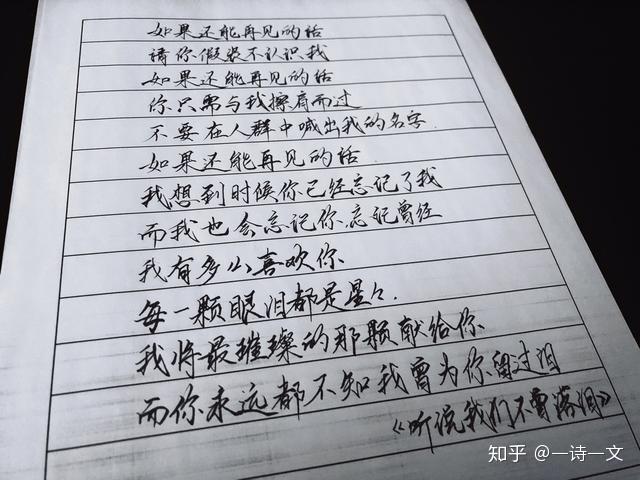 如果还能再见的话
请你假装不认识我
如果还能再见的话
你只需与我擦肩而过
不要在人群中喊出我的名字.
如果还能再见的话.
我想到时候你已经忘记了我
而我也会忘记你.忘记曾经
我有多么喜欢你
每一颗眼泪都是星々.
我将最璀璨的那颗献给你
而你永远都不知我曾为你留过泪
《听说我们不曾落泪》
知乎 @一诗一文